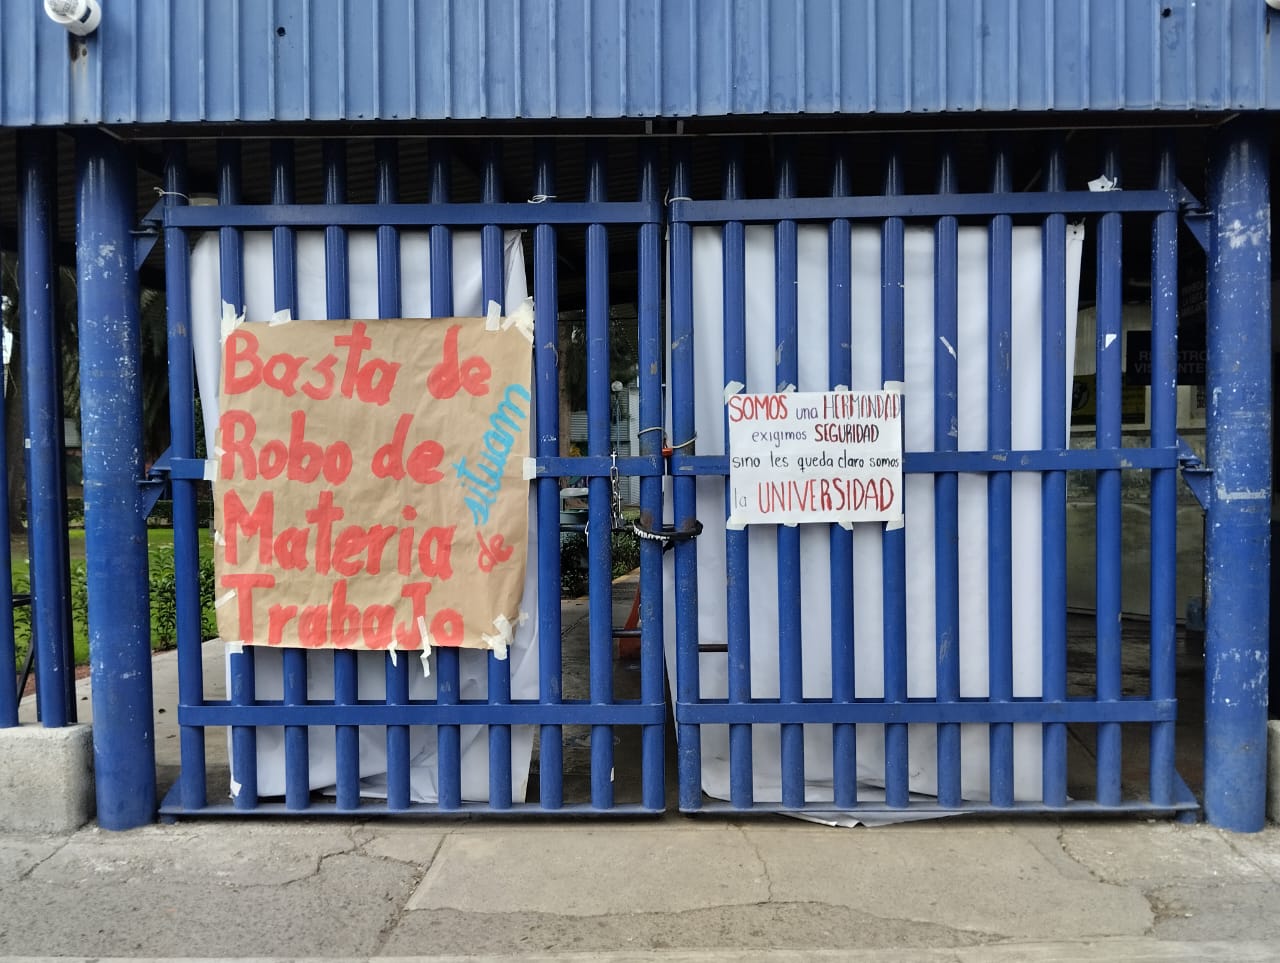 Basta de
Robo de
Materia de
Trabajo
situam
SOMOS una HERMANDAD
exigimos SEGURIDAD
sino les queda claro somos
la UNIVERSIDAD